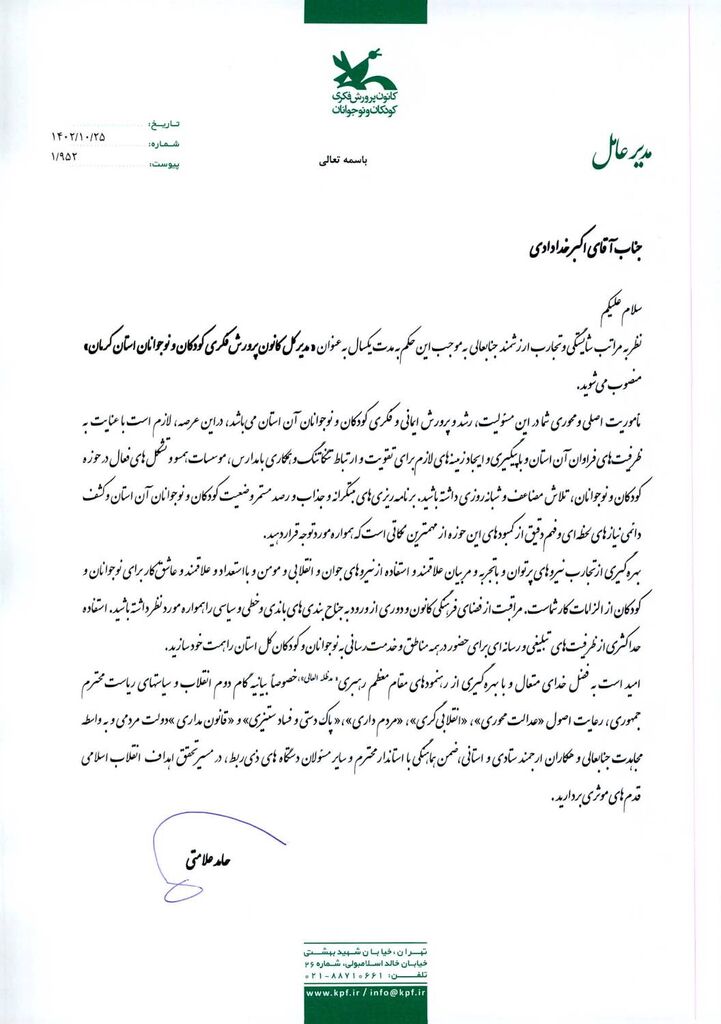 کانون پرورش فکری
کودکان و نوجوانان
تاریخ:
۱۴۰۲/۱۰/۲۵
شماره:
۱/۹۵۲
پیوست:
باسمه تعالی
مدیر عامل
جناب آقای اکبر خدادادی
سلام علیکم
نظر به مراتب شایستگی و تجارب ارزشمند جنابعالی به موجب این حکم به مدت یکسال به عنوان «مدیر کل کانون پرورش فکری کودکان و نوجوانان استان کرمان»
منصوب می شوید.
مأموریت اصلی و محوری شما در این مسئولیت، رشد و پرورش ایمانی و فکری کودکان و نوجوانان آن استان می باشد، در این عرصه، لازم است با عنایت به
ظرفیت های فراوان آن استان و با پیگیری و ایجاد زمینه های لازم برای تقویت و ارتباط تنگاتنگ و همکاری با مدارس، موسسات همسو و تشکل های فعال در حوزه
کودکان و نوجوانان، تلاش مضاعف و شبانه روزی داشته باشید. برنامه ریزی های مبتکرانه و جذاب و رصد مستمر وضعیت کودکان و نوجوانان آن استان و کشف
دائمی نیاز های لحظه ای و فهم دقیق از کمبود های این حوزه از مهمترین نکاتی است که همواره مورد توجه قرار دهید.
بهره گیری از تجارب نیرو های پرتوان و باتجربه و مربیان علاقمند و استفاده از نیرو های جوان و انقلابی و مومن و بااستعداد و علاقمند و عاشق کار برای نوجوانان و
کودکان از الزامات کار شماست. مراقبت از فضای فرهنگی کانون و دوری از ورود به جناح بندی های باندی و خطی و سیاسی را همواره مورد نظر داشته باشید. استفاده
حداکثری از ظرفیت های تبلیغی و رسانه ای برای حضور در همه مناطق و خدمت رسانی به نوجوانان و کودکان کل استان را همت خود سازید.
امید است به فضل خدای متعال و با بهره گیری از رهنمود های مقام معظم رهبری «مدظله العالی»، خصوصاً بیانیه گام دوم انقلاب و سیاستهای ریاست محترم
جمهوری، رعایت اصول «عدالت محوری»، «انقلابی گری»، «مردم داری»، «پاک دستی و فساد ستیزی» و «قانون مداری» دولت مردمی و به واسطه
مجاهدت جنابعالی و همکاران ارجمند ستادی و استانی، ضمن هماهنگی با استاندار محترم و سایر مسئولان دستگاه های ذی ربط، در مسیر تحقق اهداف انقلاب اسلامی
قدم های موثری بردارید.
حامد علامتی
تهران، خیابان شهید بهشتی
خیابان خالد اسلامبولی، شماره ۲۶
تلفن: ۰۲۱-۸۸۷۱۰۶۶۱
www.kpf.ir / info@kpf.ir